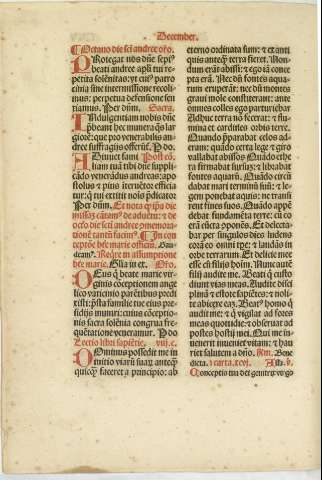 December.
Octauo die sci andree oro.
Protegat nos dne sepius
beati andree apli tui re-
petita solēnitas: vt cuius patro
cinia sine intermissione recoli-
mus: perpetua defensione sen
tiamus. Per dnm. Secra.
Indulgentiam nobis dne
prbeant hec munera qs lar
giorē: que pro venerabilis an-
dree suffragijs offerūt. P. do.
Adiuuet fami Post cōm.
liam tuā tibi dne suppli-
cādo venerādus andreas: apo
stolus z pius interuētor efficia
tur: q tui extitit nois pdicator
Per dnm. Et nota q ipa die
missa
de aduentu: z de
octo die sci andree
In con
ceptōe bte marie officiū. Gau-
deam9. Reqre in assumptione
bte marie. Gla in ex. Oro.
Deus q beate marie vir-
ginis cōceptionem ange
lico vaticinio parentibus predi
xisti: psta familie tue eius pre-
sidijs muniri: cuius cōceptio-
nis sacra solēnia congrua fre-
quētatione veneramur. P. do
Lectio libri sapiētie. viij. c.
Dominus possedit me in
initio viarū suarū anteq
quicq faceret a principio: ab
eterno ordinata sum: z ex anti
quis anteq terra fieret. Non-
dum erāt abissi: z ego iā concep
ta erā. Nec dū fontes aquaru
eruperāt: nec dū montes
graui mole constiterant: ante
omnes colles ego parturiebar
Adhuc terra nō fecerat: z flu-
mina et cardines orbis terre.
Quando pparabat celos ad-
eram: quādo certa lege z giro
vallabat abissos: Quādo ethe
ra firmabat sursus: z librabat
fontes aquarū. Quādo circū
dabat mari terminū suū: z le-
gem ponebat aquis: ne transi
rent fines suos. Quādo appē
debat fundamēta terre: cū eo
erā cūcta ponēs. Et delecta-
bar per singulos dies ludens
corā eo omni tpe: z ludens in
orbe terrarum. Et delicie mee
esse cū filijs hoim. Nunc ergo
filij audite me. Beati q custo
diunt vias meas. Audite disci
plinā z estote sapiētes: z noli-
te abijcere eā. Beatus homo q
audit me: z q vigilat ad fores
meas quotidie: z obseruat ad
postes hostij mei. Qui me in-
uenerit inueniet vitam: z hau
riet salutem a dno. Bene
dicta. carta. Alla. v.
Conceptio tui dei genitrix virgo